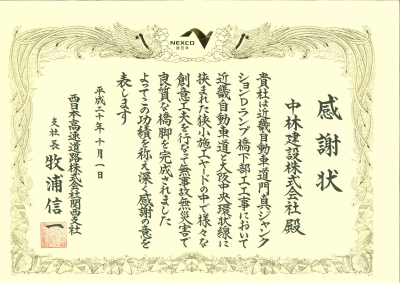 NEXCO
西日本
感謝状
中林建設株式会社 殿
貴社は近畿自動車道門真ジャンク
ションDランプ橋下部工工事において
近畿自動車道と大阪中央環状線に
挟まれた狭小施工ヤードの中で様々な
創意工夫を行なって無事故無災害で
良質な橋脚を完成されました
よってこの功績を称え深く感謝の意を
表します
平成二十年十月一日
西日本高速道路株式会社関西支社
支社長 牧浦信一